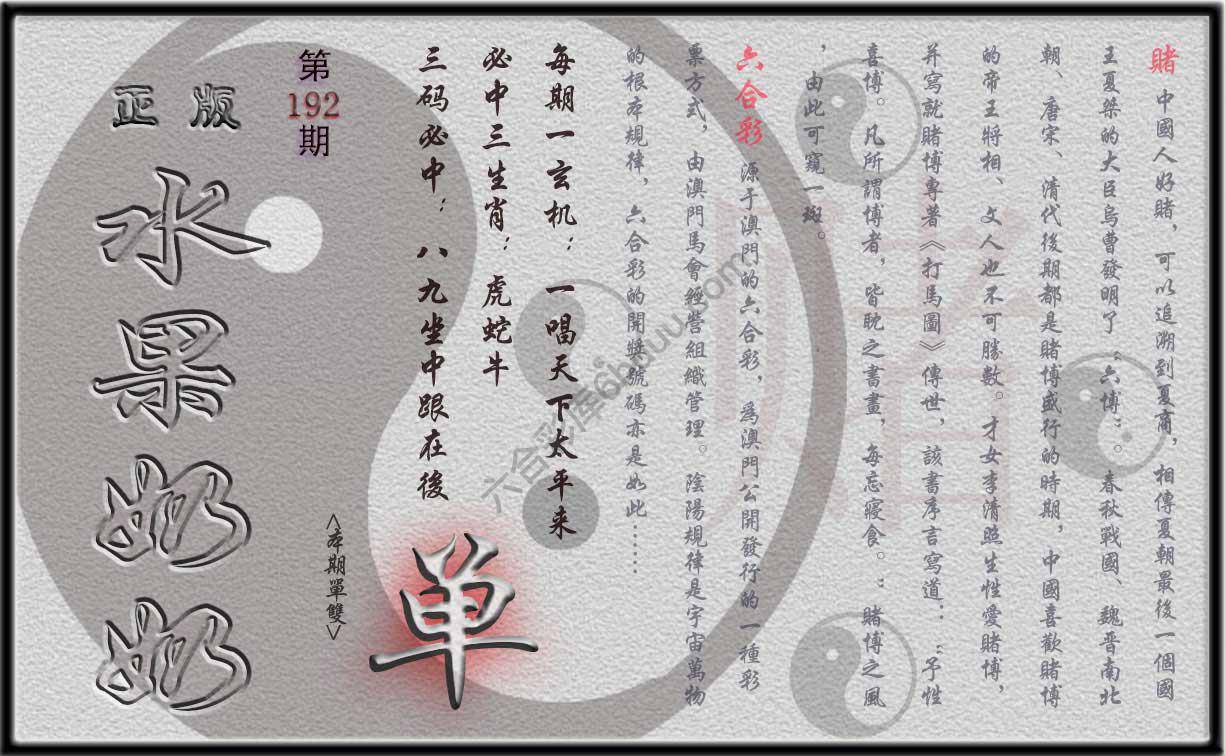 賭 中國人好賭，可以追溯到夏商，相傳夏朝最後一個國
王夏桀的大臣烏曹發明了“六博”。春秋戰國、魏晋南北
朝、唐宋、清代後期都是賭博盛行的時期，中國喜歡賭博
的帝王將相、文人也不可勝數。才女李清照生性愛賭博，
并寫就賭博專著《打馬圖》傳世，該書序言寫道：“予性
喜博。凡所謂博者，皆耽之書畫，每忘寢食。：賭博之風
，由此可窺一斑。
六合彩 源于澳門的六合彩，爲澳門公開發行的一種彩
票方式，由澳門馬會經營組織管理。陰陽規律是宇宙萬物
的根本規律，六合彩的開獎號碼亦是如此……
每期一玄机：一唱天下太平来
必中三生肖：虎蛇牛
三码必中：八九坐中跟在後
单
<本期單雙>
第
192
期
正版
水果奶奶
賭
六合彩库6huuu.com